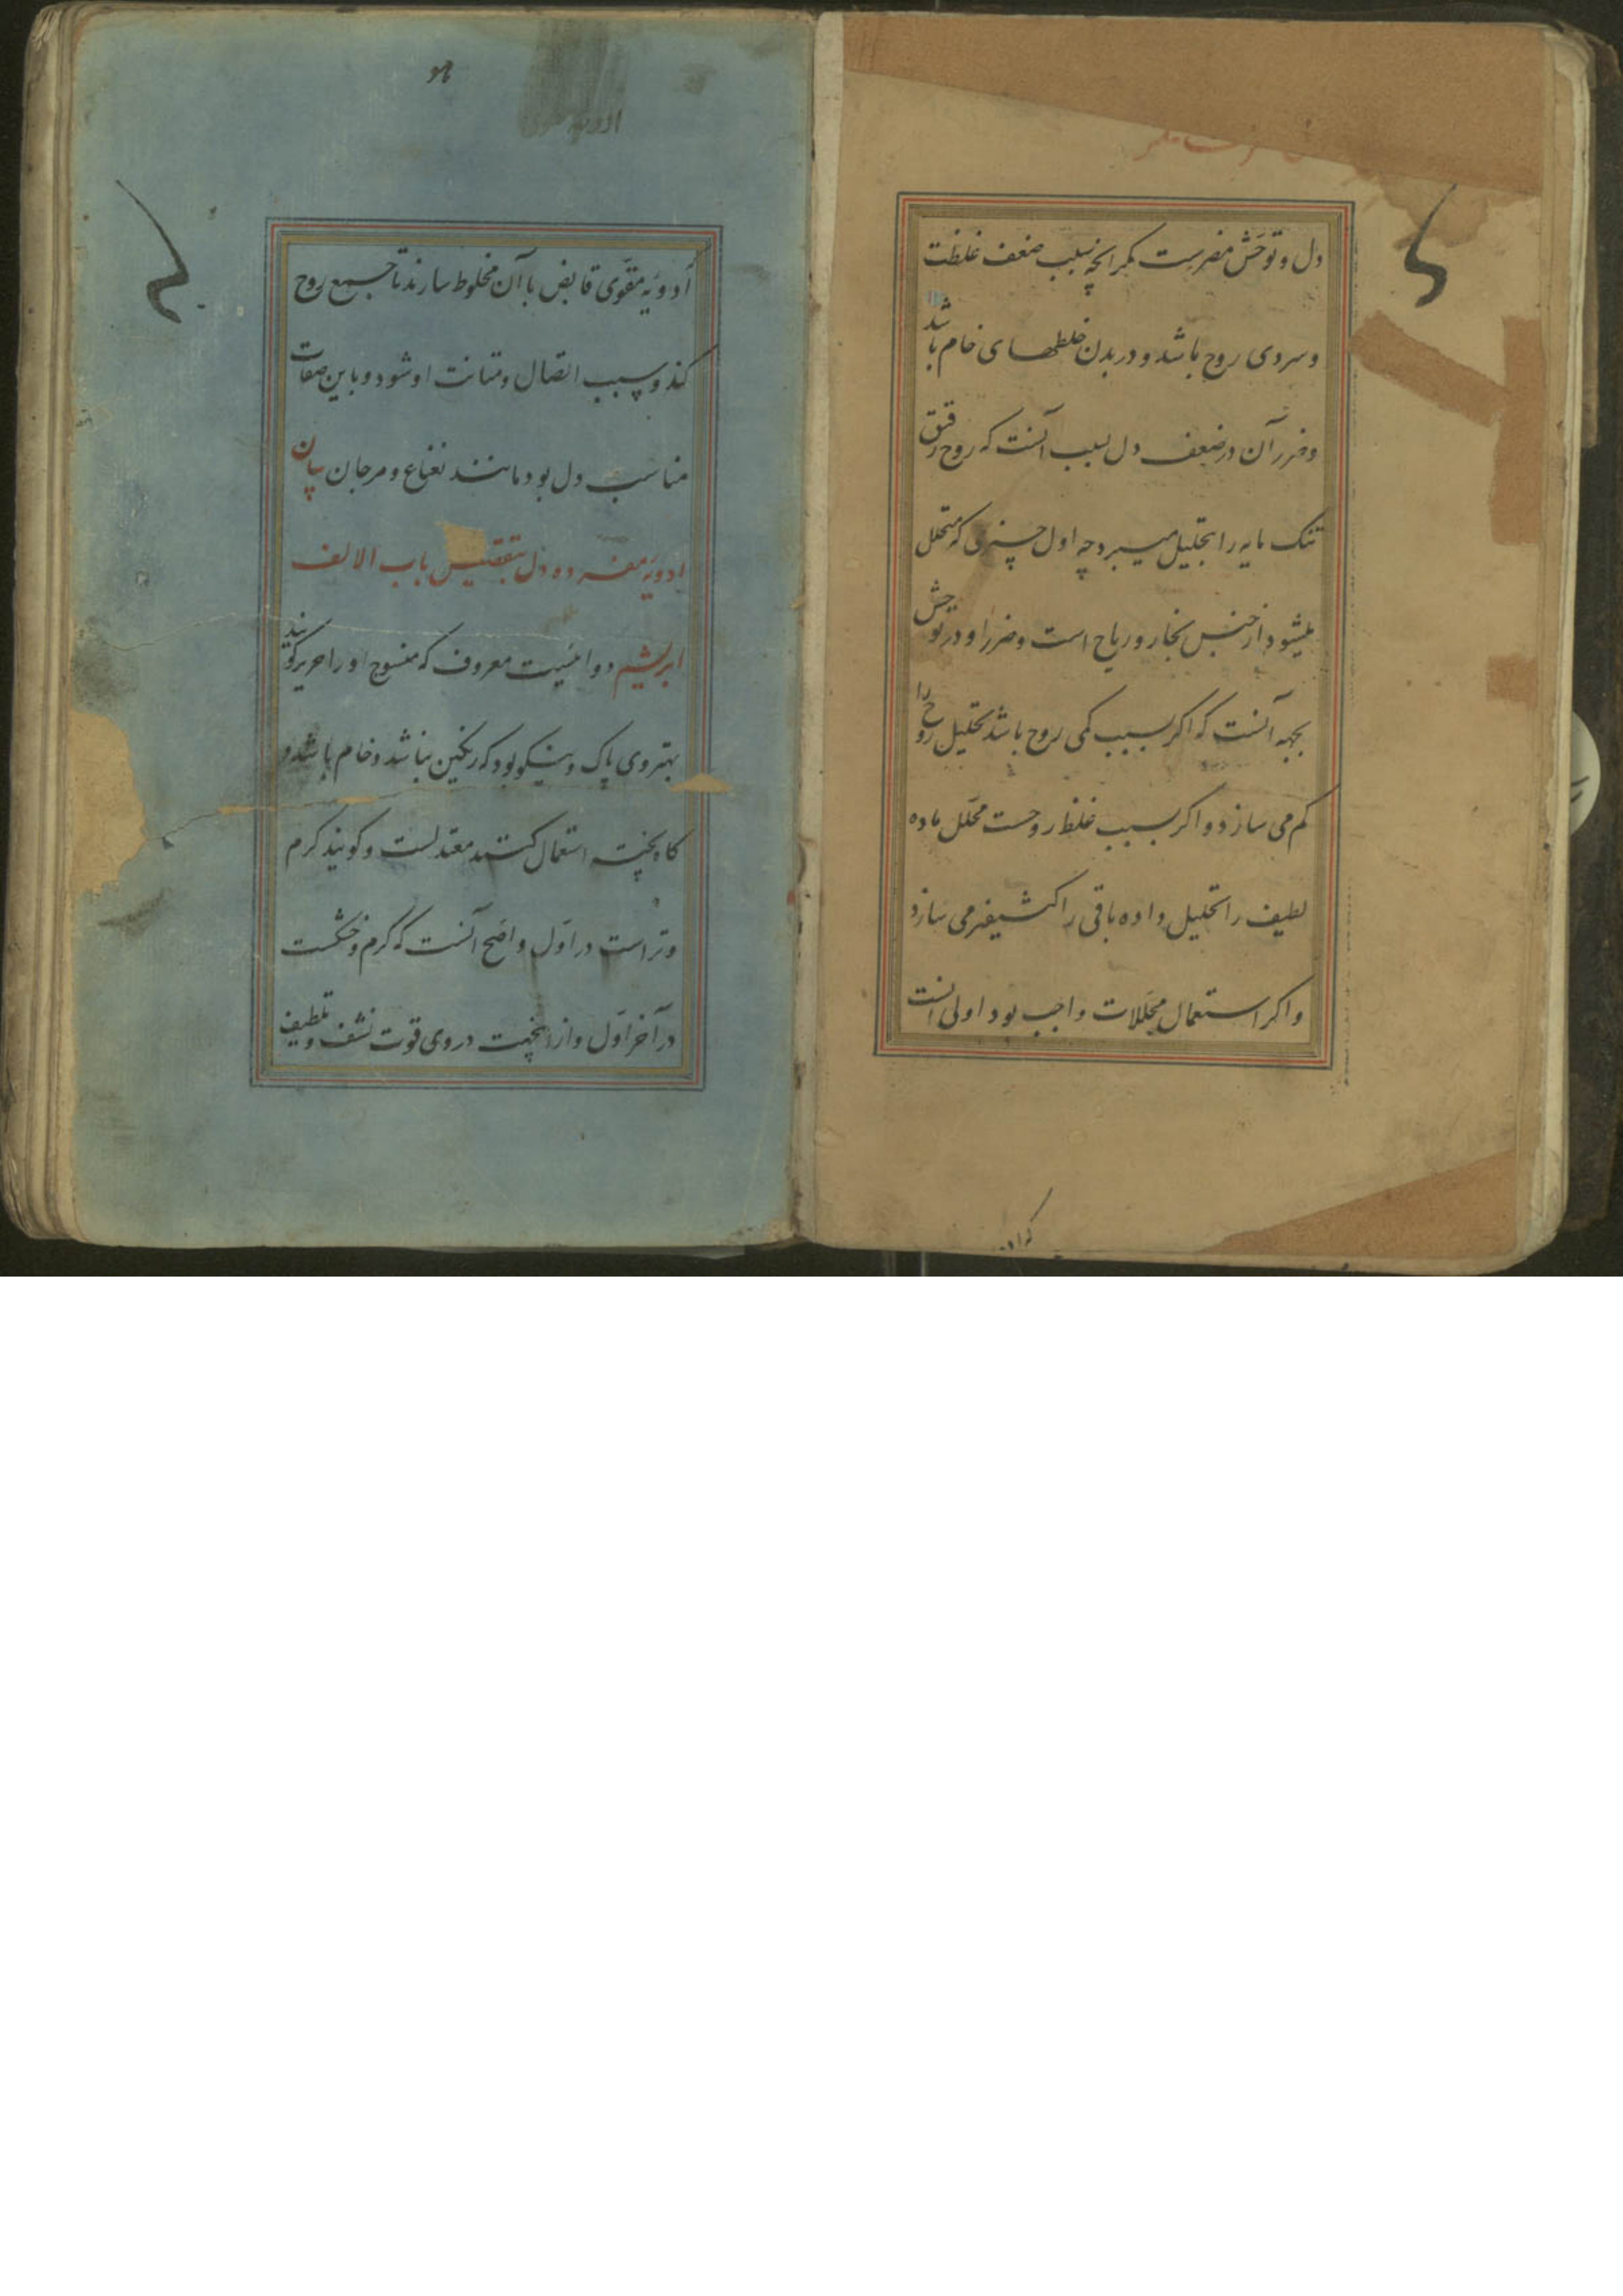 دل و توحّش مضرست مکر انچه بسبب ضعف غلظت
و سردی روح باشد و در بدن خلطهای خام باشد
و ضرر آن در ضعف دل بسبب آنست که روح رقیق
تنک مایه را بتحلیل میبرد چه اول چیزی که متحلل
میشود از جنس بخار و ریاح است و ضرر او در توحش
بجهه آنست که اکر بسبب کمی روح باشد تحلیل روح را
کم می سازد و اکر بسبب غلظ روحست محلل ماده
لطیف را تحلیل داده باقی را کثیفتر می سازد
و اکر استعمال محللات واجب بود اولی انست
که اد
ادویه مقوّی قابض با آن مخلوط سازند تا جمع روح
کند و سبب اتصال و متانت او شود و باین صفات
مناسب دل بود مانند نعناع و مرجان بیان
ادویه مفرده دل باب الالف
ابریشم دوائیست معروف که منسوج او را حریر کویند
بهتر وی پاک و نیکو بود که رنکین نباشد و خام باشد و
کاه پخته استعمال کنند معتدلست و کویند کرم
و تر است در اوّل و اصح آنست که کرم و خشکست
در آخر اوّل و از انجهت در وی قوت نشف و تلطیف